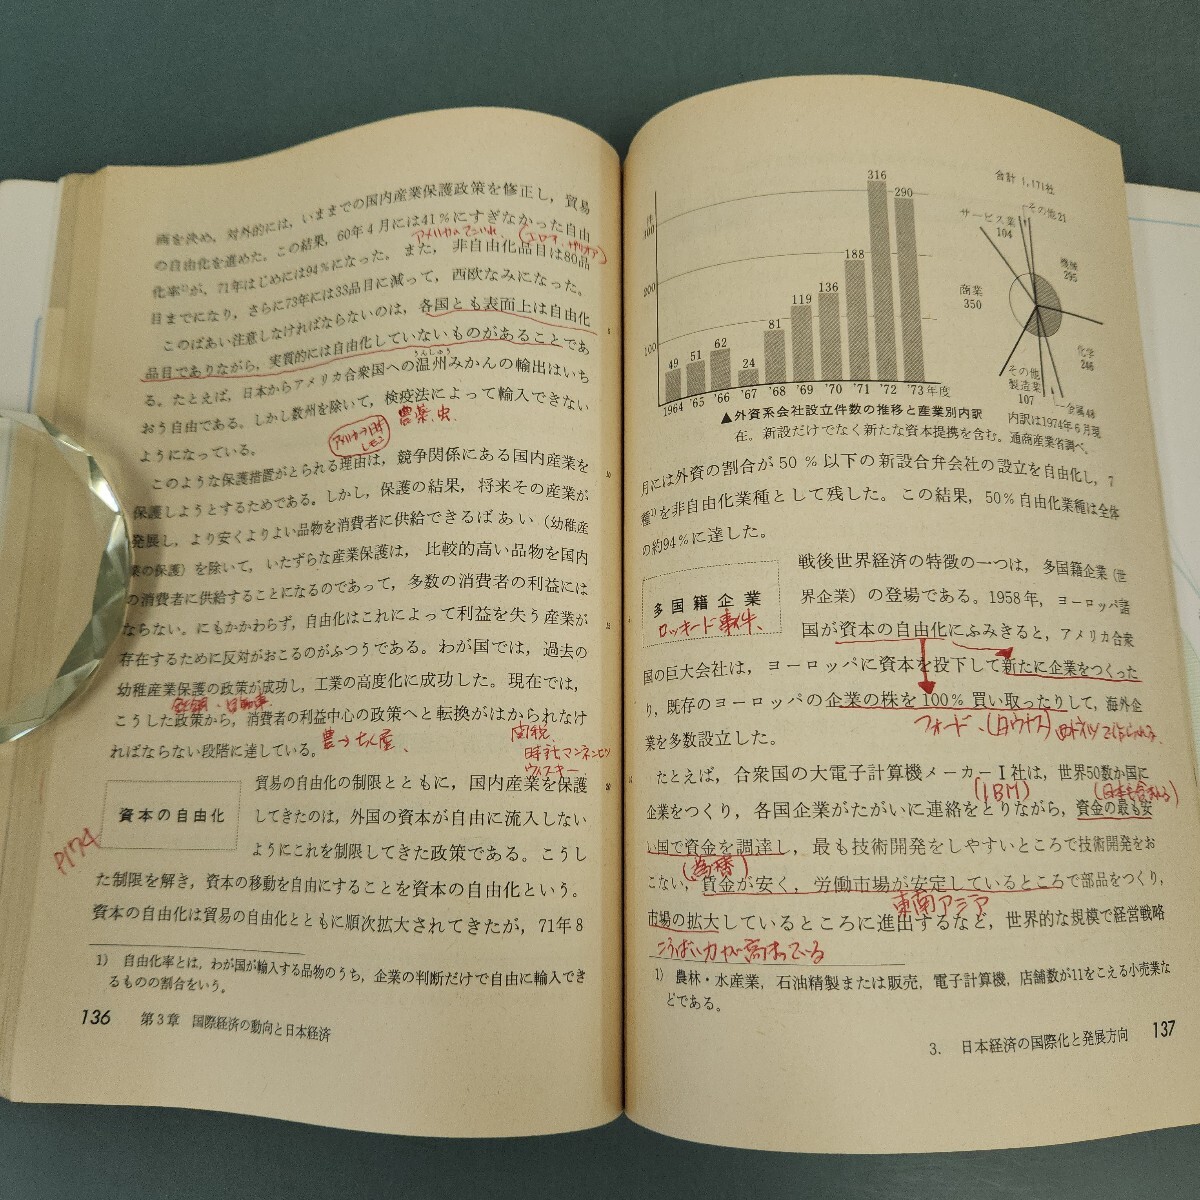 画を決め，対外的には，いままでの国内産業保護政策を修正し，貿易
の自由化を進めた。この結果，60年4月には41％にすぎなかった自由
化率¹⁾が，71年はじめには94％になった。また，非自由化品目は80品
目までになり，さらに73年には33品目に減って，西欧なみになった。
このばあい注意しなければならないのは，各国とも表面上は自由化
品目でありながら，実質的には自由化していないものがあることであ
る。たとえば，日本からアメリカ合衆国への温州みかんの輸出はいち
うんしゅう
おう自由である。しかし数州を除いて，検疫法によって輸入できない
ようになっている。
農薬、虫
このような保護措置がとられる理由は，競争関係にある国内産業を
保護しようとするためである。しかし，保護の結果，将来その産業が
発展し，より安くよりよい品物を消費者に供給できるばあい（幼稚産
業の保護）を除いて，いたずらな産業保護は，比較的高い品物を国内
の消費者に供給することになるのであって，多数の消費者の利益には
ならない。にもかかわらず，自由化はこれによって利益を失う産業が
存在するために反対がおこるのがふつうである。わが国では，過去の
幼稚産業保護の政策が成功し，工業の高度化に成功した。現在では，
こうした政策から，消費者の利益中心の政策へと転換がはかられなけ
ればならない段階に達している。
関税
ウィスキー
資本の自由化
貿易の自由化の制限とともに，国内産業を保護
してきたのは，外国の資本が自由に流入しない
ようにこれを制限してきた政策である。こうし
P174
た制限を解き，資本の移動を自由にすることを資本の自由化という。
資本の自由化は貿易の自由化とともに順次拡大されてきたが，71年8
1) 自由化率とは，わが国が輸入する品物のうち，企業の判断だけで自由に輸入でき
るものの割合をいう。
136 第3章 国際経済の動向と日本経済
件
300
200
100
49 51 62 24 81 119 136 188 316 290
1964 '65 '66 '67 '68 '69 '70 '71 '72 '73年度
合計 1,171社
その他21
サービス業
104
機械
295
商業
350
化学
246
その他
製造業
107
金属48
▲外資系会社設立件数の推移と産業別内訳 内訳は1974年6月現
在。新設だけでなく新たな資本提携を含む。通商産業省調べ。
月には外資の割合が50％以下の新設合弁会社の設立を自由化し，7
種¹⁾を非自由化業種として残した。この結果，50％自由化業種は全体
の約94％に達した。
多国籍企業
ロッキード事件、
戦後世界経済の特徴の一つは，多国籍企業（世
界企業）の登場である。1958年，ヨーロッパ諸
国が資本の自由化にふみきると，アメリカ合衆
国の巨大会社は，ヨーロッパに資本を投下して新たに企業をつくった
り，既存のヨーロッパの企業の株を100％買い取ったりして，海外企
業を多数設立した。
フォード、
たとえば，合衆国の大電子計算機メーカーI社は，世界50数か国に
(IBM)
企業をつくり，各国企業がたがいに連絡をとりながら，資金の最も安
い国で資金を調達し，最も技術開発をしやすいところで技術開発をお
(為替)
こない，賃金が安く，労働市場が安定しているところで部品をつくり，
東南アジア
市場の拡大しているところに進出するなど，世界的な規模で経営戦略
こうばい力が高まっている
1) 農林・水産業，石油精製または販売，電子計算機，店舗数が11をこえる小売業な
どである。
3. 日本経済の国際化と発展方向 137